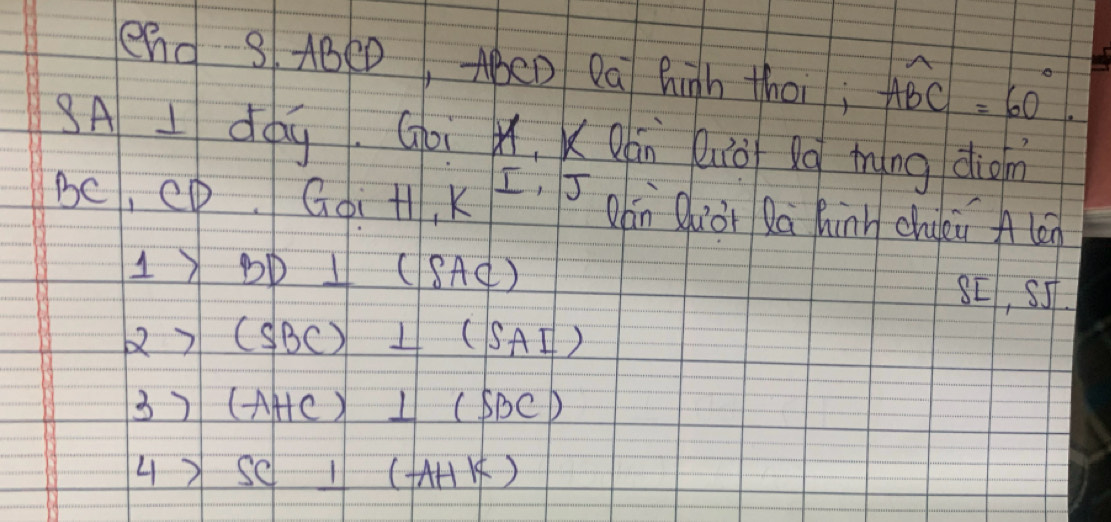 Cho S.ABCD, ABCD là hình thoi; ABC = 60°.
SA ⊥ đáy. Gọi I, J lần lượt là trung điểm
BC, CD. Gọi H, K lần lượt là hình chiếu A lên
SI, SJ.
1> BD ⊥ (SAC)
2> (SBC) ⊥ (SAI)
3> (AHC) ⊥ (SBC)
4> SC ⊥ (AHK)